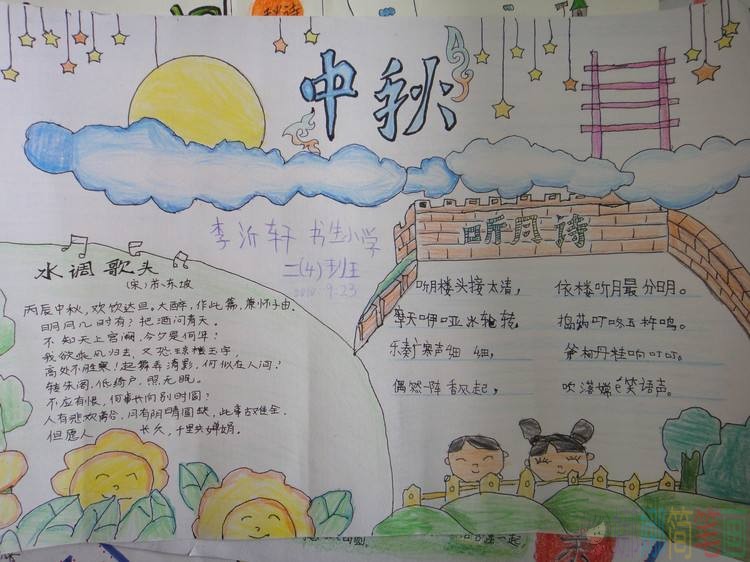 中秋
李沂轩 书生小学
二(4)班
2010.9.23
水调歌头
(宋)苏东坡
丙辰中秋,欢饮达旦。大醉,作此篇,兼怀子由。
明月几时有?把酒问青天。
不知天上宫阙,今夕是何年?
我欲乘风归去,又恐琼楼玉宇,
高处不胜寒!起舞弄清影,何似在人间?
转朱阁,低绮户,照无眠。
不应有恨,何事长向别时圆?
人有悲欢离合,月有阴晴圆缺,此事古难全。
但愿人 长久,千里共婵娟。
听月诗
听月楼头接太清, 依楼听月最分明。
摩天咿哑冰轮转, 捣药叮咚玉杵鸣。
乐奏广寒声细细, 斧柯丹桂响叮叮。
偶然一阵香风起, 吹落嫦 笑语声。